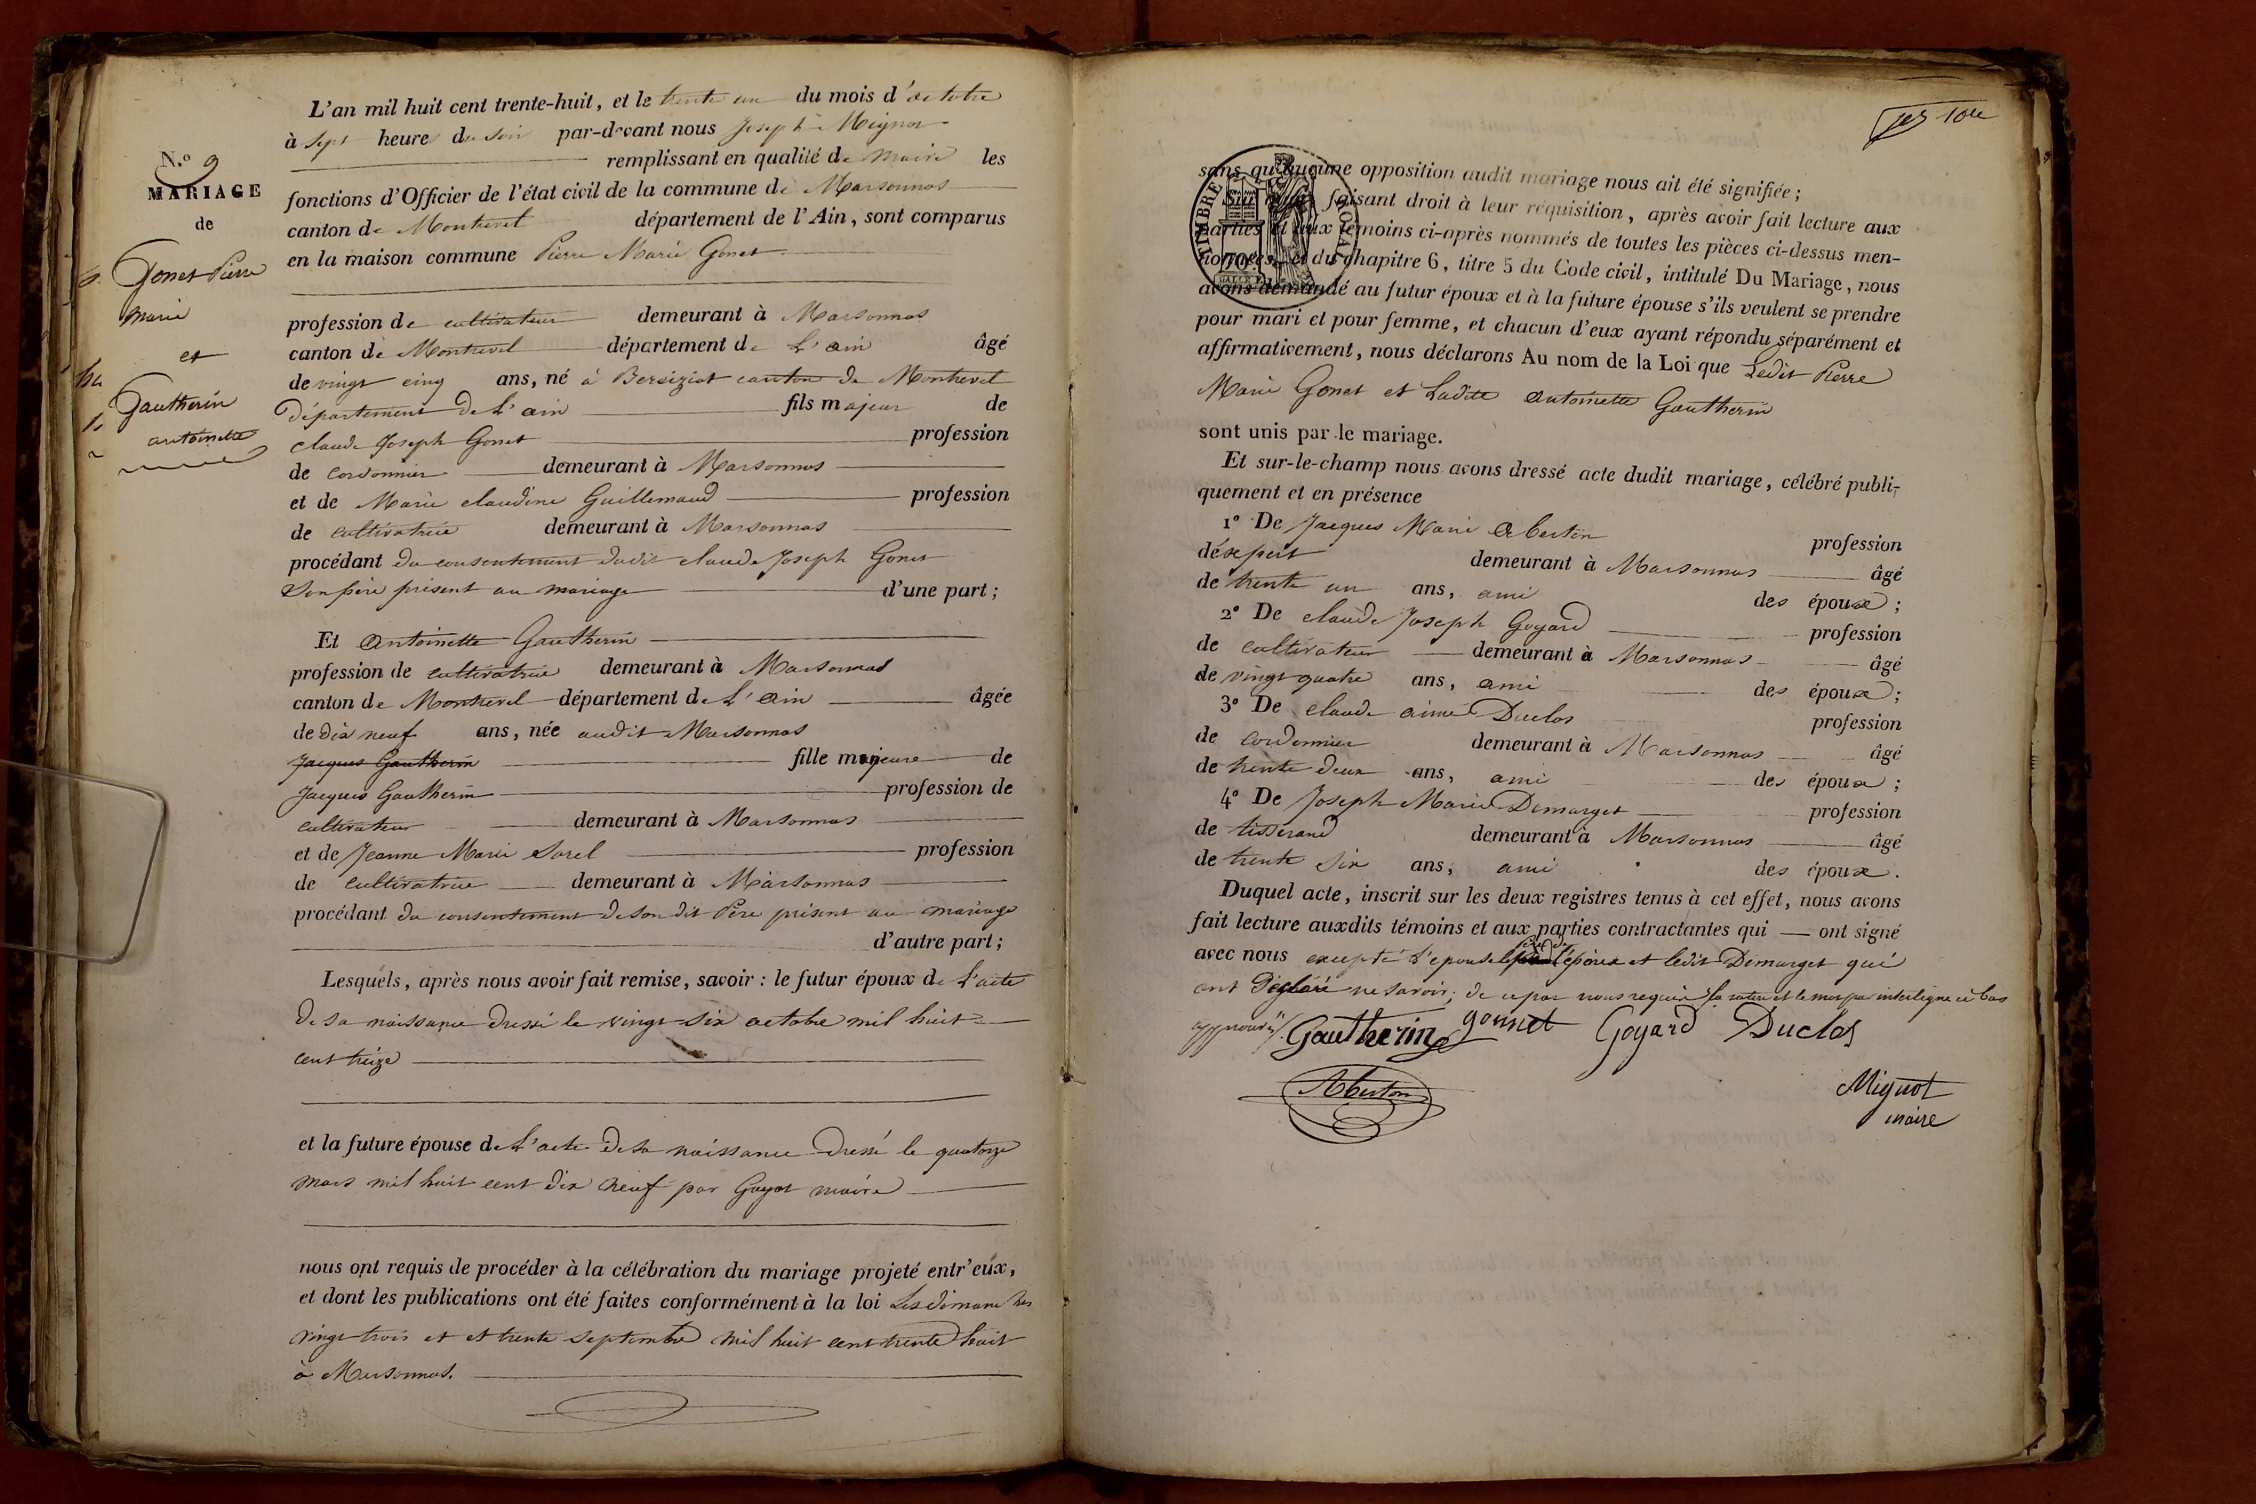 N.º 9
MARIAGE
de
Gonet Pierre
marie
et
Gautherin
antoinette
L'an mil huit cent trente-huit, et le trente un du mois d'octobre
à sept heures du soir par-devant nous Joseph Mignot
remplissant en qualité de maire les
fonctions d'Officier de l'état civil de la commune de Marsonnas
canton de Montrevel département de l'Ain, sont comparus
en la maison commune Pierre Marie Gonet
profession de cultivateur demeurant à Marsonnas
canton de Montrevel département de L'ain âgé
de vingt cinq ans, né à Bereiziat canton de Montrevel
département de L'ain fils majeur de
claude Joseph Gonet profession
de cordonnier demeurant à Marsonnas
et de Marie claudine Guillemaud profession
de cultivatrice demeurant à Marsonnas
procédant du consentement dudit claude Joseph Gonet
Son père présent au mariage d'une part;
Et Antoinette Gautherin
profession de cultivatrice demeurant à Marsonnas
canton de Montrevel département de L'ain âgée
de dix neuf ans, née audit Marsonnas
Jacques Gautherin fille mineure de
Jacques Gautherin profession de
cultivateur demeurant à Marsonnas
et de Jeanne Marie Sorel profession
de cultivatrice demeurant à Marsonnas
procédant du consentement de son dit Père présent au mariage
d'autre part;
Lesquels, après nous avoir fait remise, savoir: le futur époux de L'acte
de sa naissance dressé le vingt six octobre mil huit
cent treize
et la future épouse de L'acte de sa naissance dressé le quatorze
mars mil huit cent dix neuf par Goyot maire
nous ont requis de procéder à la célébration du mariage projeté entr'eux,
et dont les publications ont été faites conformément à la loi Les dimanches
vingt trois et et trente septembre mil huit cent trente huit
à Marsonnas.
sans qu'aucune opposition audit mariage nous ait été signifiée;
Sur quoi, faisant droit à leur réquisition, après avoir fait lecture aux
parties et aux témoins ci-après nommés de toutes les pièces ci-dessus men-
tionnées, et du chapitre 6, titre 5 du Code civil, intitulé Du Mariage, nous
avons demandé au futur époux et à la future épouse s'ils veulent se prendre
pour mari et pour femme, et chacun d'eux ayant répondu séparément et
affirmativement, nous déclarons Au nom de la Loi que Ledit Pierre
Marie Gonet et Ladite Antoinette Gautherin
sont unis par le mariage.
Et sur-le-champ nous avons dressé acte dudit mariage, célébré publi-
quement et en présence
1º De Jacques Marie Alberton profession
d'expert demeurant à Marsonnas âgé
de trente un ans, ami des époux;
2º De claude Joseph Goyard profession
de cultivateur demeurant à Marsonnas âgé
de vingt quatre ans, ami des époux;
3º De claude aimé Duclos profession
de cordonnier demeurant à Marsonnas âgé
de trente deux ans, ami des époux;
4º De Joseph Marie Demarget profession
de tisserand demeurant à Marsonnas âgé
de trente six ans, ami des époux.
Duquel acte, inscrit sur les deux registres tenus à cet effet, nous avons
fait lecture auxdits témoins et aux parties contractantes qui — ont signé
avec nous excepté L'épouse l'époux et ledit Demarget qui
ont déclaré ne savoir; de ce par nous requis La rature et le mot par interligne ci bas
approuvés
Gautherin gonnet Goyard Duclos
Alberton
Mignot
maire
TIMBRE ROYAL
70c